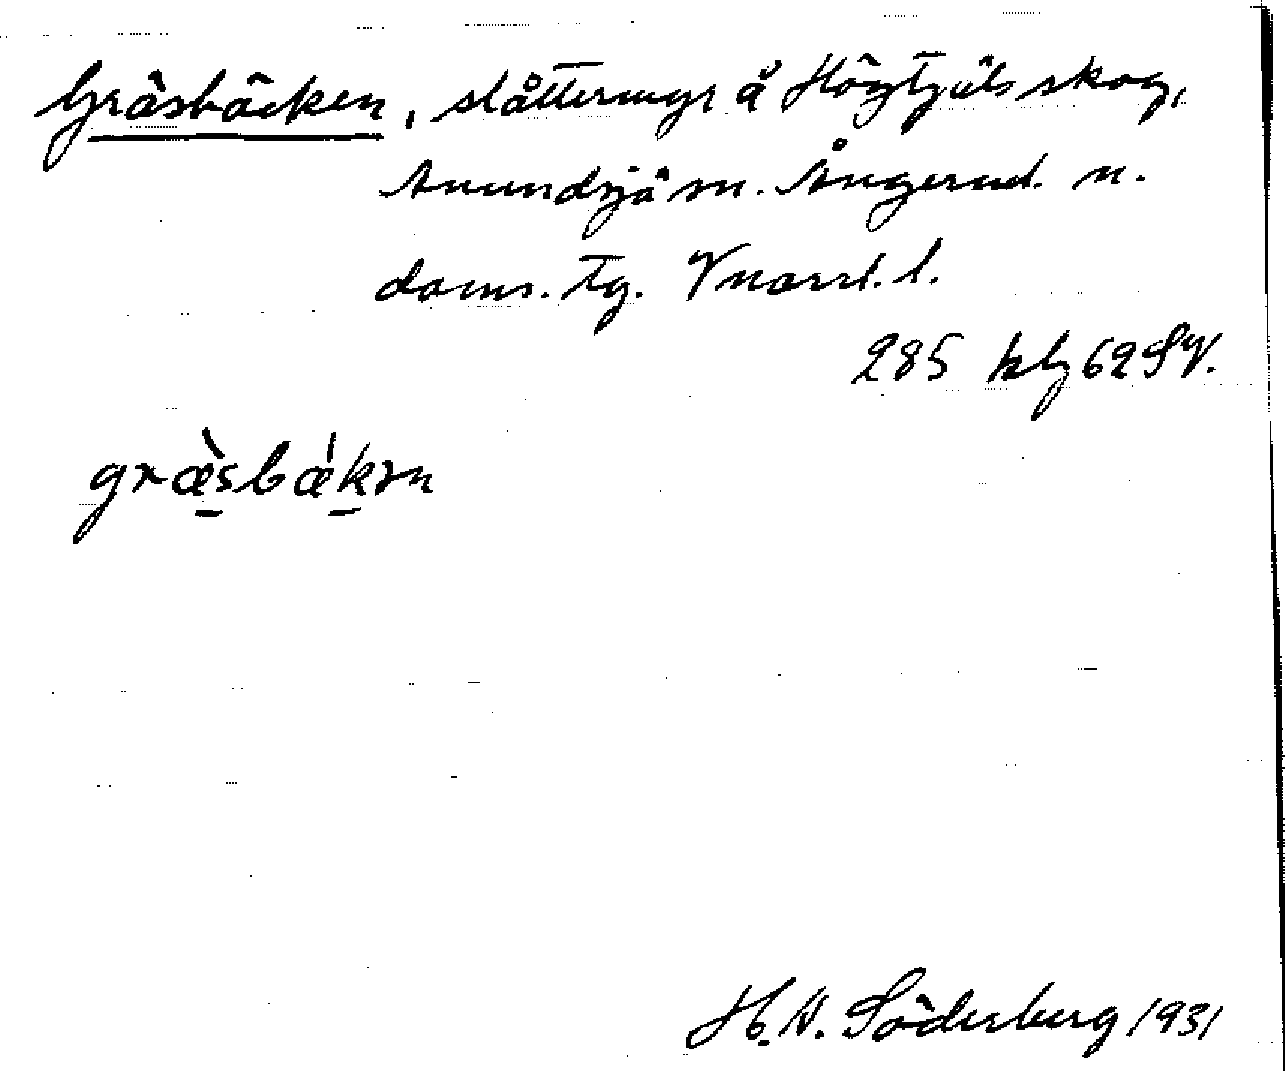 Gräsbäcken, slåttermyr å Högtjäls skog,
Anundsjö sn. Ångerml. n.
doms. tg. Vnorrl. l.
285 klj 62 SV.
græ̀sbǽkən
H. W. Söderberg 1931